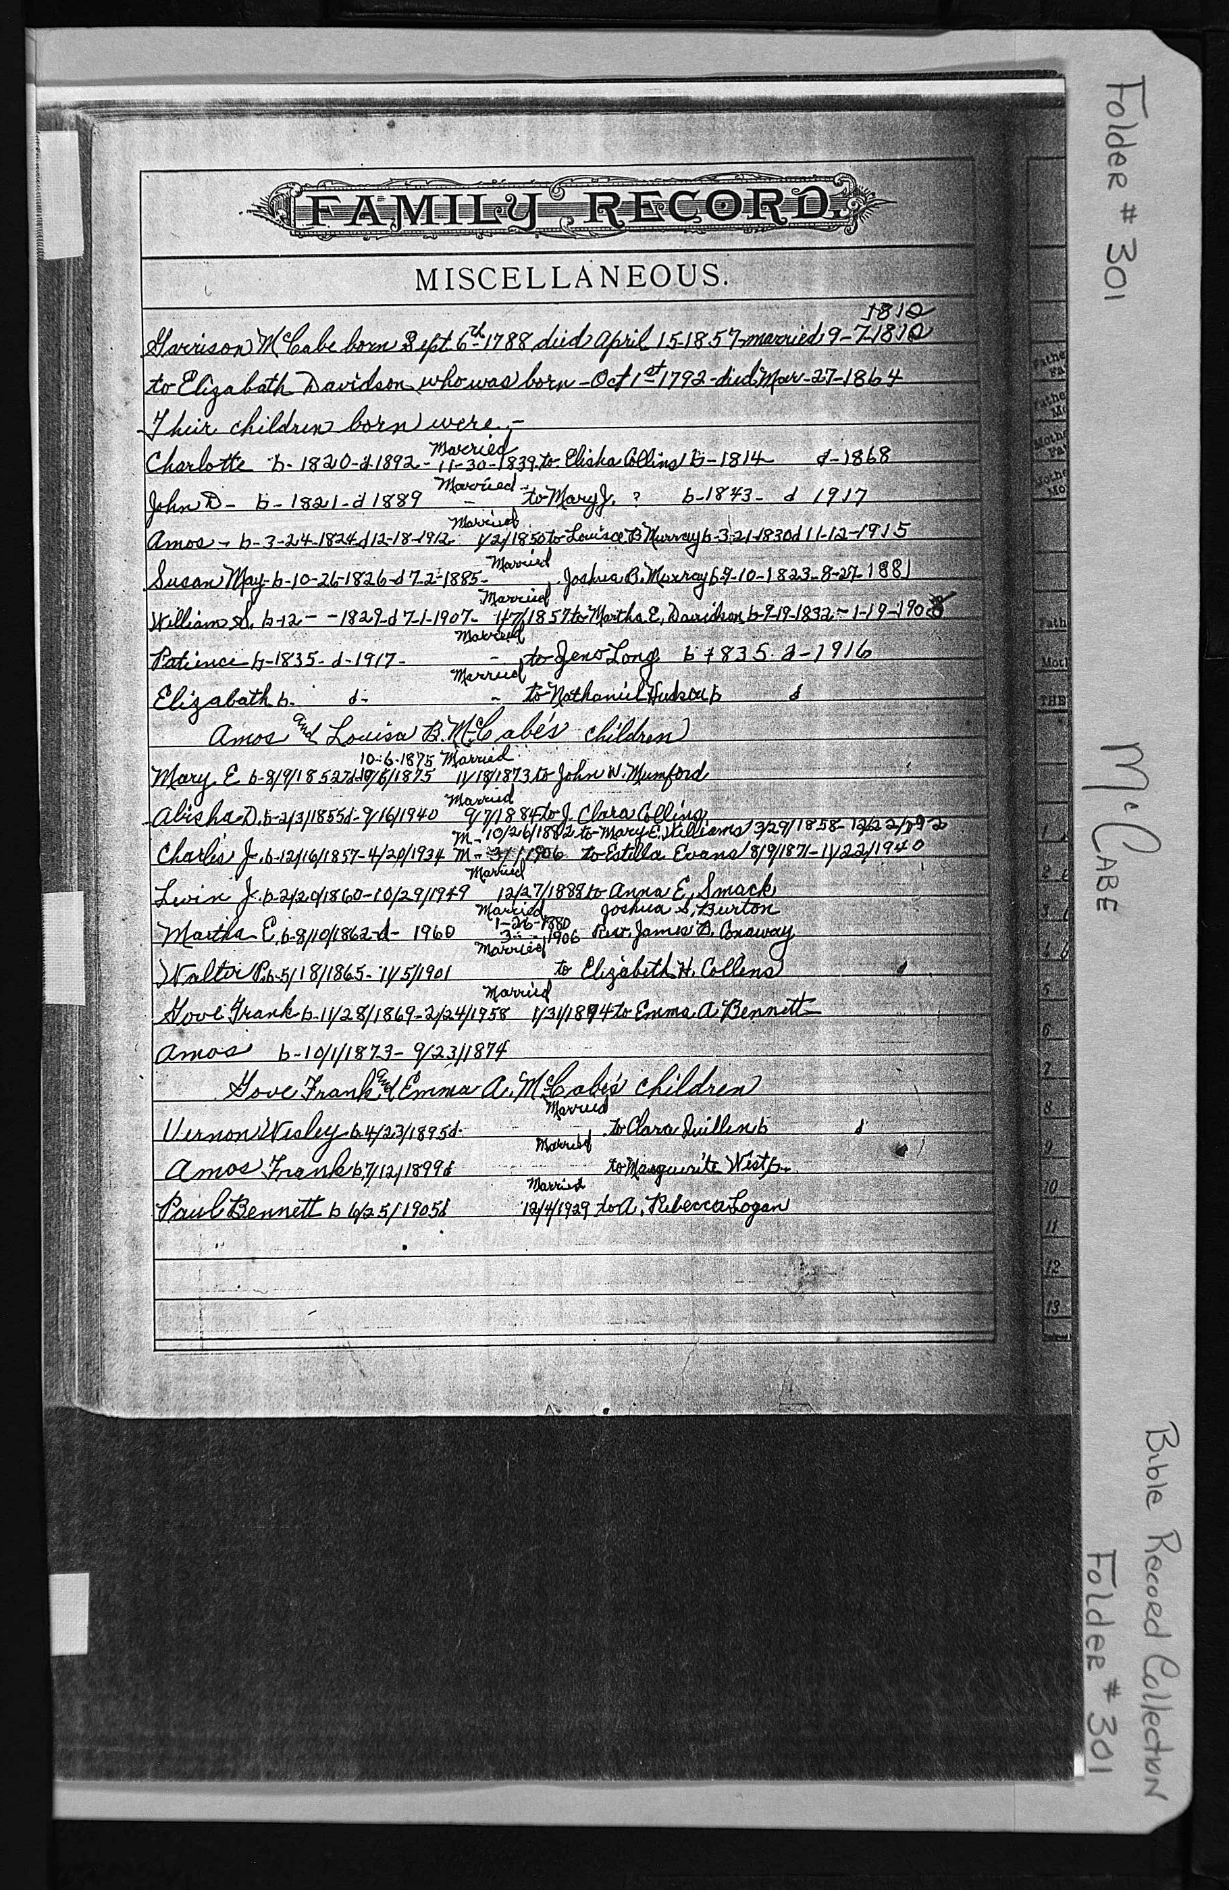 FAMILY RECORD.
MISCELLANEOUS.
1812
Garrison McCabe born Sept. 6th 1788 died April 15-1857-married 9-7-1812
to Elizabeth Davidson who was born-Oct 1st 1792-died Mar-27-1864
Their children born were,-
Married
Charlotte b-1820-d 1892-11-30-1839 to Elisha Collins b-1814 d-1868
Married
John D- b-1821-d 1889 - to Mary J. ? b-1843- d 1917
Married
Amos- b-3-24-1824 d 12-18-1912 1/2/1850 to Louisa B Murray b-3-21-1830 d 11-12-1915
Married
Susan May-b-10-26-1826-d 7-2-1885- Joshua B. Murray b 9-10-1823-8-27-1881
Married
William S. b-12- -1829-d 7-1-1907- 1/7/1857 to Martha E. Davidson b-9-19-1832-1-19-190
Married
Patience b-1835-d-1917- - to Zeno Long b 1835 d-1916
Married
Elizabeth b. d- - to Nathaniel Hudson b d
Amos and Louisa B. McCabe's children
10-6-1875 Married
Mary E b-8/9/1852 d-10/6/1875 11/18/1873 to John W. Mumford
Married
Abisha D. b-2/3/1855 d-9/16/1940 9/7/1884 to J. Clara Collins
M-10/26/1882 to Mary E. Williams 3/29/1858-12/22/
Charles J. b-12/16/1857-4/20/1934 M- 3/ /1906 to Estella Evans 8/9/1871-11/22/1940
Married
Levin J. b-2/20/1860-10/29/1949 12/27/1888 to Anna E. Smack
Married Joshua S. Burton
1-26-1880
Martha E. b-8/10/1862-d- 1960 3- -1906 Rev. James B. Conaway
Married
Walter P. b-5/18/1865-11/5/1901 to Elizabeth H. Collens
Married
Gove Frank b-11/28/1869-2/24/1958 1/31/1894 to Emma A. Bennett
Amos b-10/1/1873-9/23/1874
Gove Frank and Emma A. McCabe's children
Married
Vernon Wesley b 4/23/1895 d- to Clara Quillen b d
Married
Amos Frank b 7/12/1899 d to Marguerite West b.
Married
Paul Bennett b 6/25/1905 d 12/4/1929 to A. Rebecca Logan
Folder # 301
McCABE
Bible Record Collection
Folder # 301
THE
Fathe
Moth
1
2
3
4
5
6
7
8
9
10
11
12
13